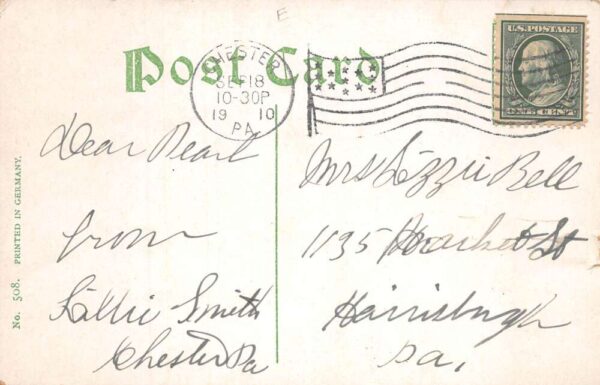 E
Post Card
CHESTER
SEP 18
10-30P
19 10
PA
U.S. POSTAGE
ONE CENT
Dear Pearl
from
Lillie Smith
Chester Pa
Mrs Lizzie Bell
1135 St
Harrisburgh
Pa.
No. 508. PRINTED IN GERMANY.